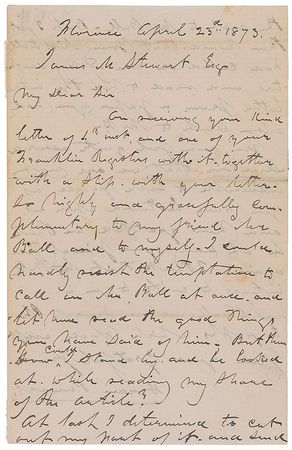 Florence April 23d 1873.
James M Stewart Esq
My Dear Sir
On receiving your kind
letter of 4th inst and one of your
Franklin Registers with it, together
with a Slip, with your letter,
so highly and gracefully com-
plimentary to my friend Mr
Ball and to myself, I could
hardly resist the temptation to
call on Mr. Ball at once, and
let him read the good things
you have said of him - But then
how could I stand by, and be looked
at, while reading my share
of the article?
At last I determined to cut
out my part of it, and send